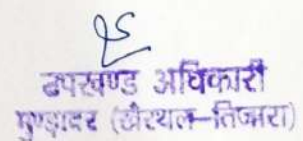 उपखण्ड अधिकारी
मुण्डावर (खैरथल–तिजारा)